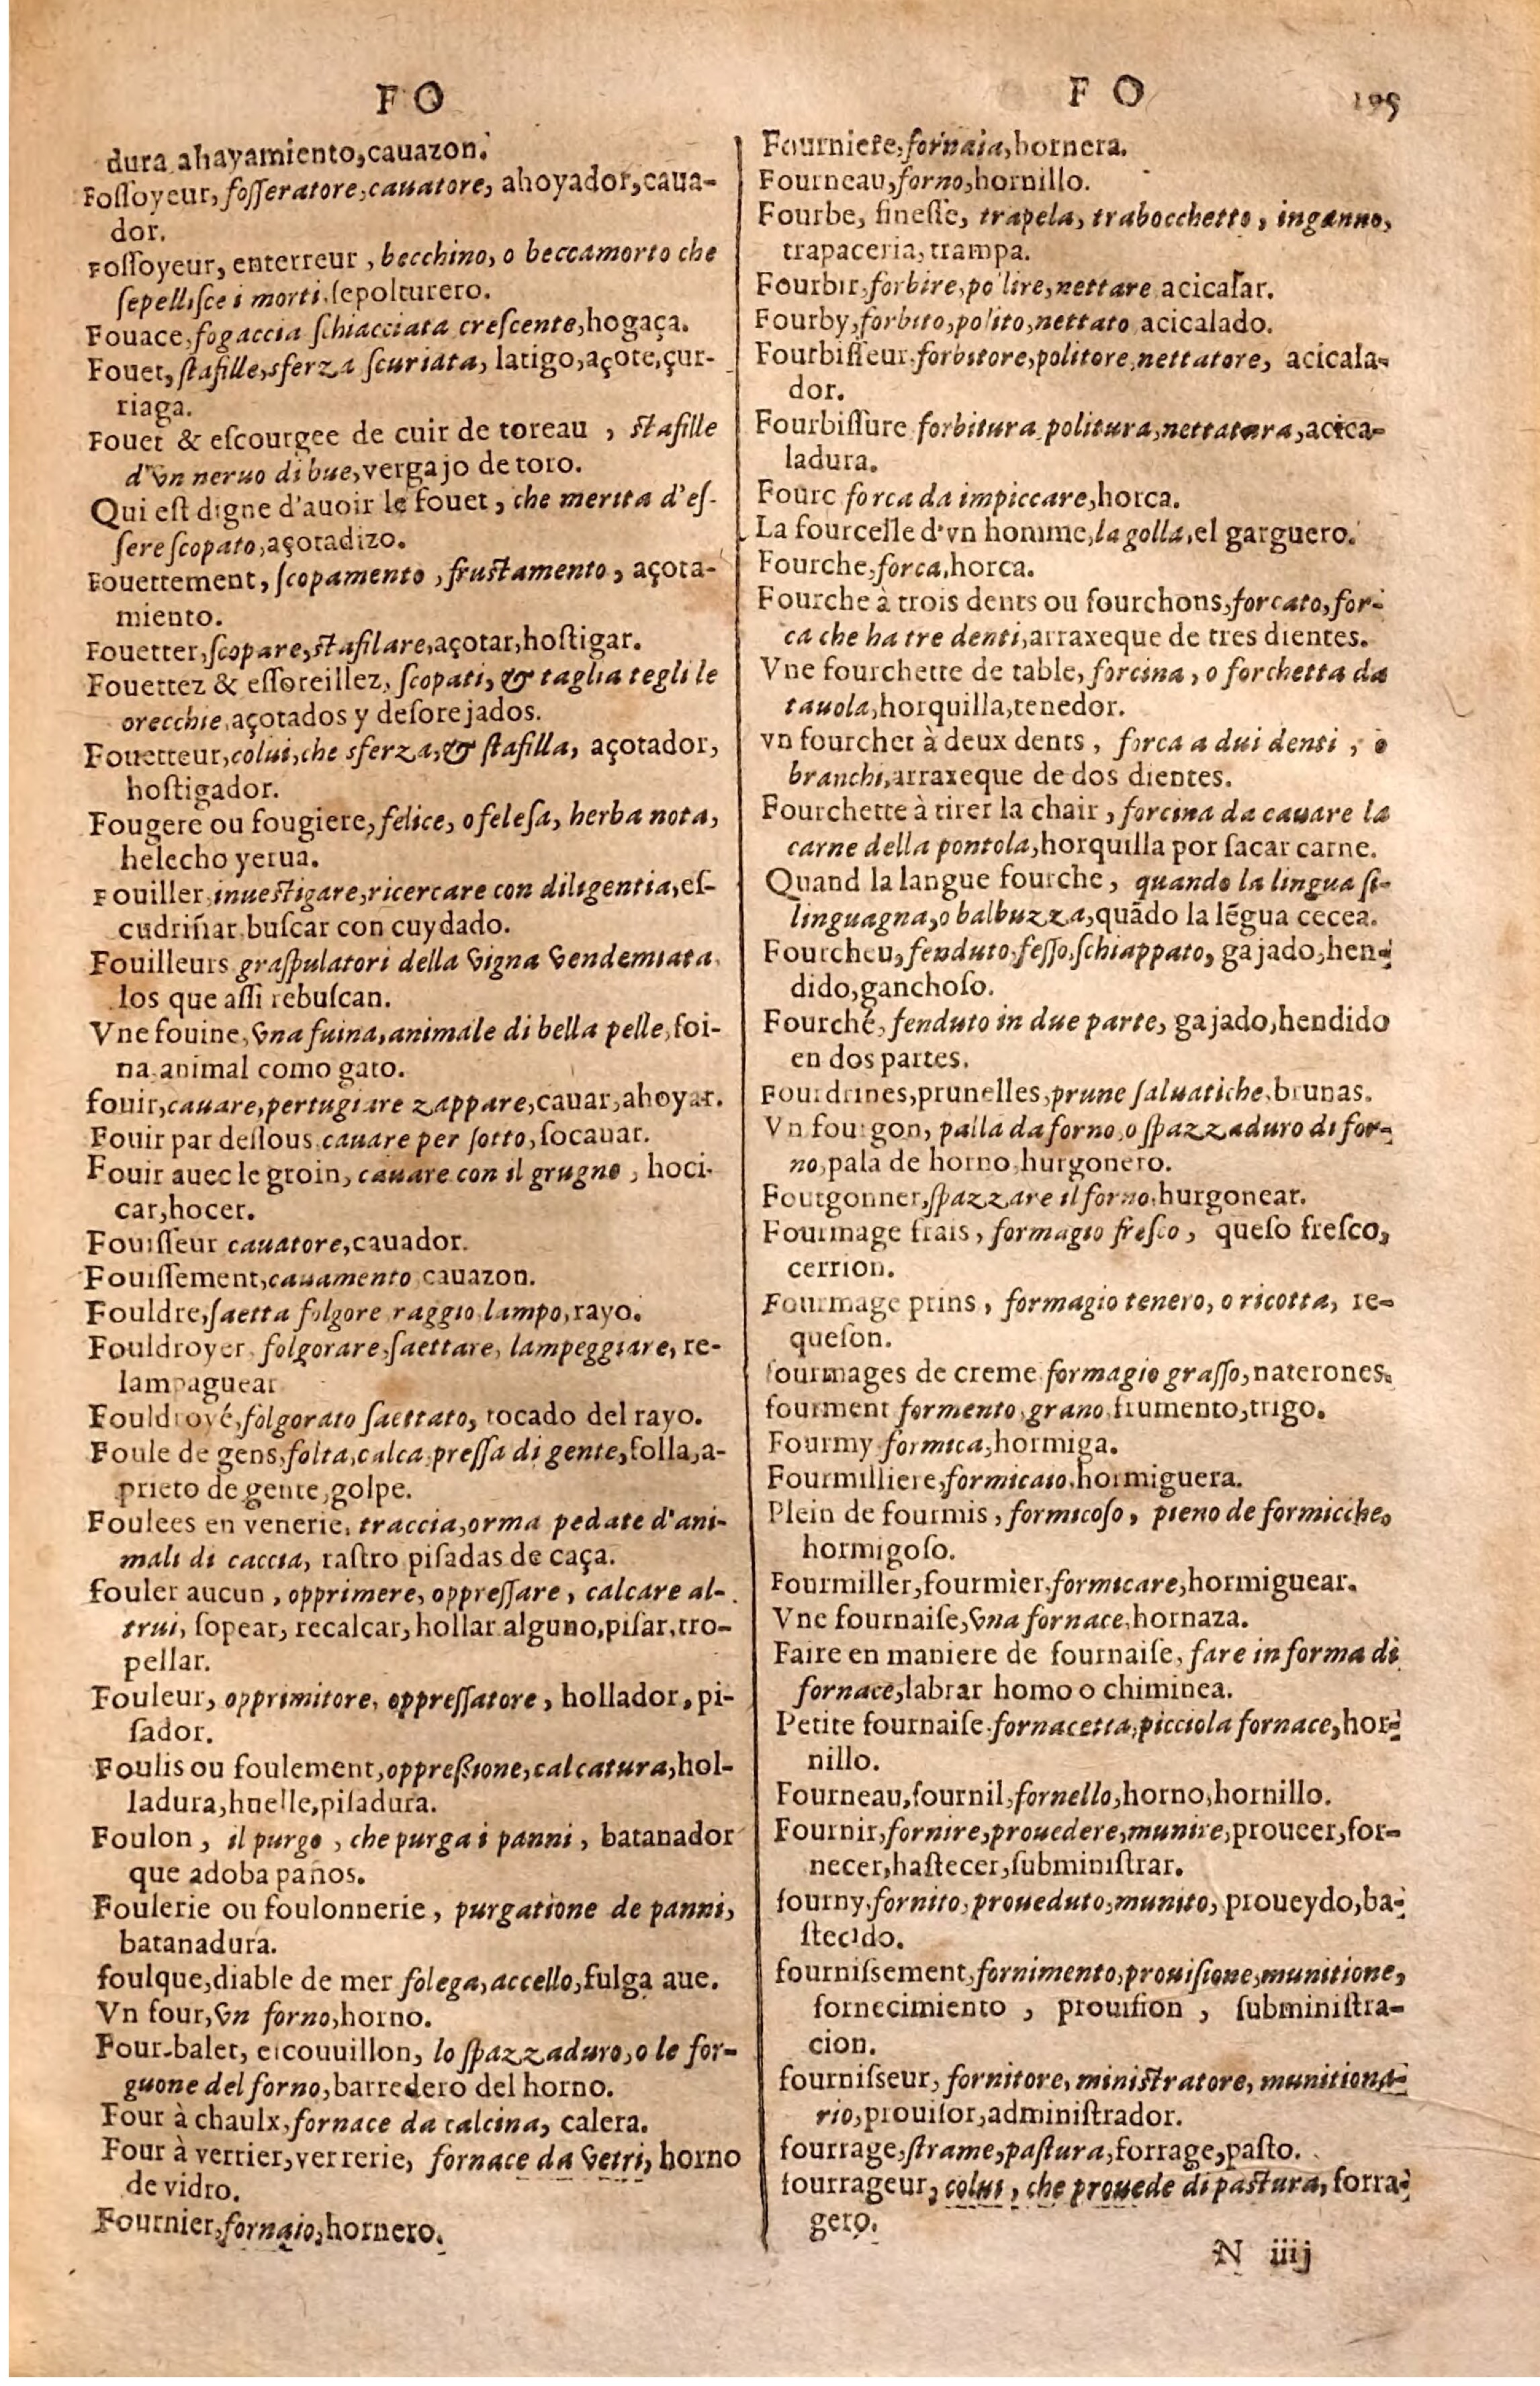 F O
dura, ahayamiento, cauazon.
Foſſoyeur, foſſeratore, cauatore, ahoyador, caua-
dor.
Foſſoyeur, enterreur, becchino, o beccamorto che
ſepelliſce i morti, ſepolturero.
Fouace, fogaccia ſchiacciata creſcente, hogaça.
Fouet, ſtafille, sferza ſcuriata, latigo, açote, çur-
riaga.
Fouet & eſcourgee de cuir de toreau, ſtafille
d'vn neruo di bue, vergajo de toro.
Qui eſt digne d'auoir le fouet, che merita d'eſ-
ſere ſcopato, açotadizo.
Fouettement, ſcopamento, fruſtamento, açota-
miento.
Fouetter, ſcopare, ſtafilare, açotar, hoſtigar.
Fouettez & eſſoreillez, ſcopati, & taglia tegli le
orecchie, açotados y deſorejados.
Fouetteur, colui, che sferza, & ſtafilla, açotador,
hoſtigador.
Fougere ou fougiere, felice, o feleſa, herba nota,
helecho yerua.
Fouiller, inueſtigare, ricercare con diligentia, eſ-
cudriñar, buſcar con cuydado.
Fouilleurs graſpulatori della vigna vendemiata,
los que aſſi rebuſcan.
Vne fouine, vna fuina, animale di bella pelle, foi-
na, animal como gato.
fouir, cauare, pertugiare zappare, cauar, ahoyar.
Fouir par deſſous cauare per ſotto, ſocauar.
Fouir auec le groin, cauare con il grugno, hoci-
car, hocer.
Fouiſſeur cauatore, cauador.
Fouiſſement, cauamento, cauazon.
Fouldre, ſaetta folgore raggio lampo, rayo.
Fouldroyer, folgorare, ſaettare, lampeggiare, re-
lampaguear
Fouldroyé, folgorato ſaettato, tocado del rayo.
Foule de gens, folta, calca, preſſa di gente, folla, a-
prieto de gente, golpe.
Foulees en venerie, traccia, orma pedate d'ani-
mali di caccia, raſtro piſadas de caça.
fouler aucun, opprimere, oppreſſare, calcare al-
trui, ſopear, recalcar, hollar alguno, piſar, tro-
pellar.
Fouleur, opprimitore, oppreſſatore, hollador, pi-
ſador.
Foulis ou foulement, oppreßione, calcatura, hol-
ladura, huelle, piſadura.
Foulon, il purgo, che purga i panni, batanador
que adoba paños.
Foulerie ou foulonnerie, purgatione de panni,
batanadura.
foulque, diable de mer folega, accello, fulga aue.
Vn four, vn forno, horno.
Four-balet, eicouuillon, lo ſpazzaduro, o le for-
guone del forno, barredero del horno.
Four à chaulx, fornace da calcina, calera.
Four à verrier, verrerie, fornace da vetri, horno
de vidro.
Fournier, fornaio, hornero.
F O 195
Fourniere, fornaia, hornera.
Fourneau, forno, hornillo.
Fourbe, fineſſe, trapela, trabocchetto, inganno,
trapaceria, trampa.
Fourbir, forbire, polire, nettare acicalar.
Fourby, forbito, polito, nettato acicalado.
Fourbiſſeur, forbitore, politore, nettatore, acicala-
dor.
Fourbiſſure forbitura politura, nettatura, acica-
ladura.
Fourc forca da impiccare, horca.
La fourcelle d'vn homme, la golla, el garguero.
Fourche, forca, horca.
Fourche à trois dents ou fourchons, forcato, for-
ca che ha tre denti, arraxeque de tres dientes.
Vne fourchette de table, forcina, o forchetta da
tauola, horquilla, tenedor.
vn fourchet à deux dents, forca a dui denti, o
branchi, arraxeque de dos dientes.
Fourchette à tirer la chair, forcina da cauare la
carne della pontola, horquilla por ſacar carne.
Quand la langue fourche, quando la lingua ſi-
linguagna, o balbuzza, quãdo la lẽgua cecea.
Fourcheu, fenduto, feſſo, ſchiappato, gajado, hen-
dido, ganchoſo.
Fourché, fenduto in due parte, gajado, hendido
en dos partes.
Fourdrines, prunelles, prune ſaluatiche, brunas.
Vn fourgon, palla da forno, o ſpazzaduro di for-
no, pala de horno, hurgonero.
Fourgonner, ſpazzare il forno, hurgonear.
Fourmage frais, formagio freſco, queſo freſco,
cerrion.
Fourmage prins, formagio tenero, o ricotta, re-
queſon.
fourmages de creme formagio graſſo, naterones.
fourment formento, grano, frumento, trigo.
Fourmy, formica, hormiga.
Fourmilliere, formicaio, hormiguera.
Plein de fourmis, formicoſo, pieno de formicche,
hormigoſo.
Fourmiller, fourmier, formicare, hormiguear.
Vne fournaiſe, vna fornace, hornaza.
Faire en maniere de fournaiſe, fare in forma di
fornace, labrar homo o chiminea.
Petite fournaiſe, fornacetta, picciola fornace, hor-
nillo.
Fourneau, fournil, fornello, horno, hornillo.
Fournir, fornire, prouedere, munire, proueer, for-
necer, haſtecer, ſubminiſtrar.
fourny, fornito, proueduto, munito, proueydo, ba-
ſtecido.
fourniſsement, fornimento, prouiſione, munitione,
fornecimiento, prouiſion, ſubminiſtra-
cion.
fourniſseur, fornitore, miniſtratore, munitiona-
rio, prouiſor, adminiſtrador.
fourrage, ſtrame, paſtura, forrage, paſto.
fourrageur, colui, che prouede di paſtura, forra-
gero.
N iiij